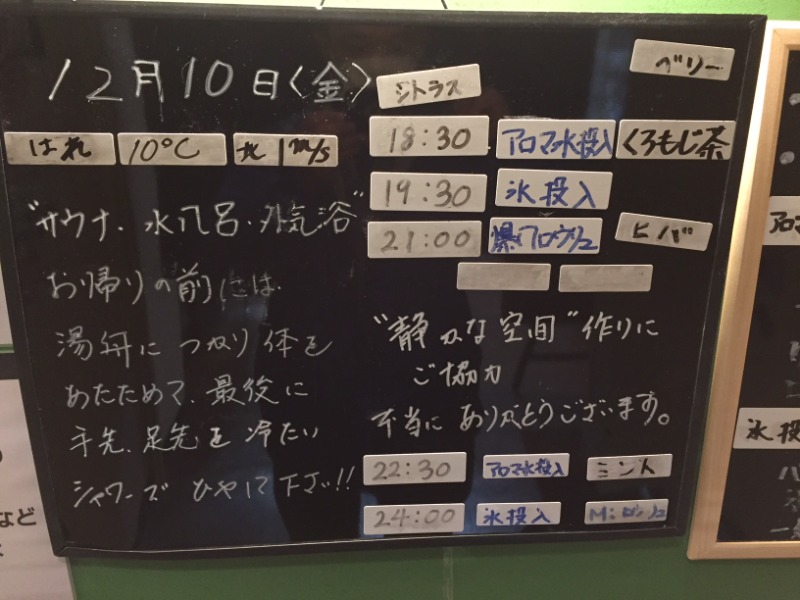 12月10日〈金〉
はれ 10℃ 北 1m/s
"サウナ・水風呂・外気浴"
お帰りの前には、
湯舟につかり体を
あたためて、最後に
手先、足先を冷たい
シャワーで ひやして下さい!!
シトラス ベリー
18:30 アロマ水投入 くろもじ茶
19:30 氷投入
21:00 爆ブロウリュ ヒバ
"静かな空間"作りに
ご協力
本当にありがとうございます。
22:30 アロマ水投入 ミント
24:00 氷投入
アロマ
氷投
など